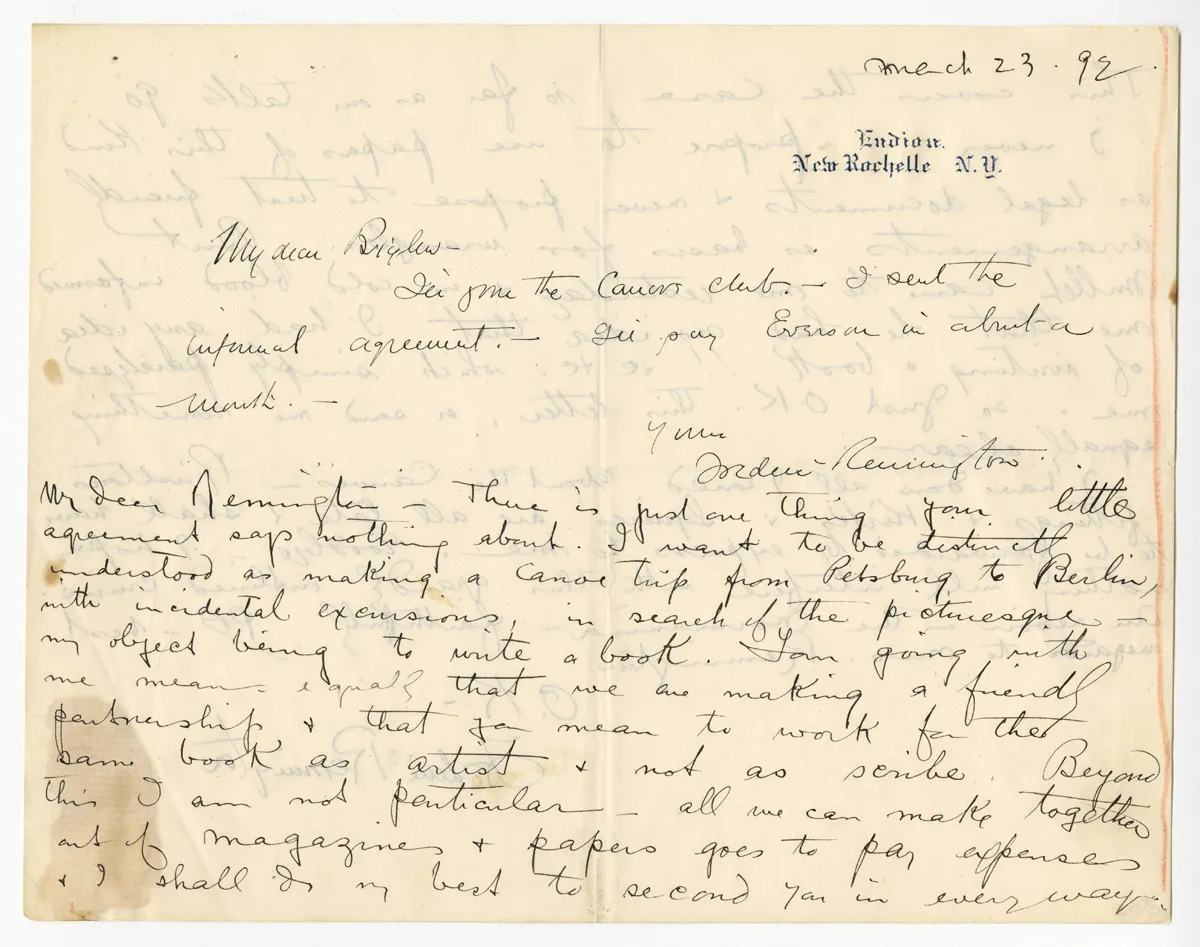 March 23 · 92.
Endion.
New Rochelle N.Y.
My dear Bigelow—
I'll join the Canoe club.— I sent the
informal agreement.— I'll pay Everson in about a
month.—
Yours
Frederic Remington.
My Dear Remington — There is just one thing your little
agreement says nothing about. I want to be distinctly
understood as making a canoe trip from Petsburg to Berlin,
with incidental excursions, in search of the picturesque —
my object being to write a book. Your going with
me means equally that we are making a friendly
partnership & that you mean to work for the
same book as artist & not as scribe. Beyond
this I am not particular — all we can make together
out of magazines & papers goes to pay expenses
& I shall do my best to second you in every way—